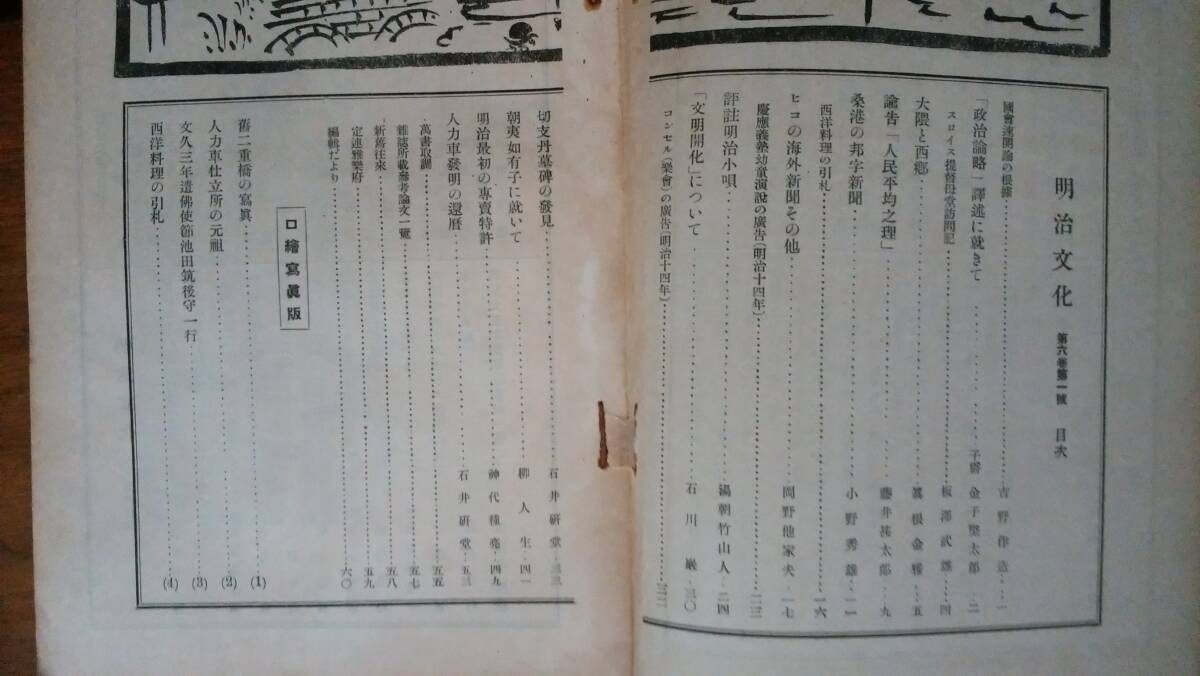 明治文化 第六卷第一號 目次
國會速開論の根據……吉野作造…一
「政治論略」譯述に就きて……子爵 金子堅太郎…二
スロイス提督母堂訪問記……板澤武雄…四
大隈と西鄕……眞根金雅…五
諭告「人民平均之理」……藤井甚太郎…九
桑港の邦字新聞……小野秀雄…一一
西洋料理の引札……一六
ヒコの海外新聞その他……岡野他家夫…一七
慶應義塾幼童演說の廣告(明治十四年)……二三
評註明治小唄……湯朝竹山人…二四
「文明開化」について……石川巖…三〇
コンセル(樂會)の廣告(明治十四年)……三二
切支丹墓碑の發見……石井硏堂…三三
朝夷如有子に就いて……柳人生…四一
明治最初の專賣特許……神代種亮…四九
人力車發明の還曆……石井硏堂…五三
萬書取調……五五
雜誌所載參考論文一覽……五七
新舊往來……五八
定連雅樂府……五九
編輯だより……六〇
口繪寫眞版
舊二重橋の寫眞……(1)
人力車仕立所の元祖……(2)
文久三年遣佛使節池田筑後守一行……(3)
西洋料理の引札……(4)